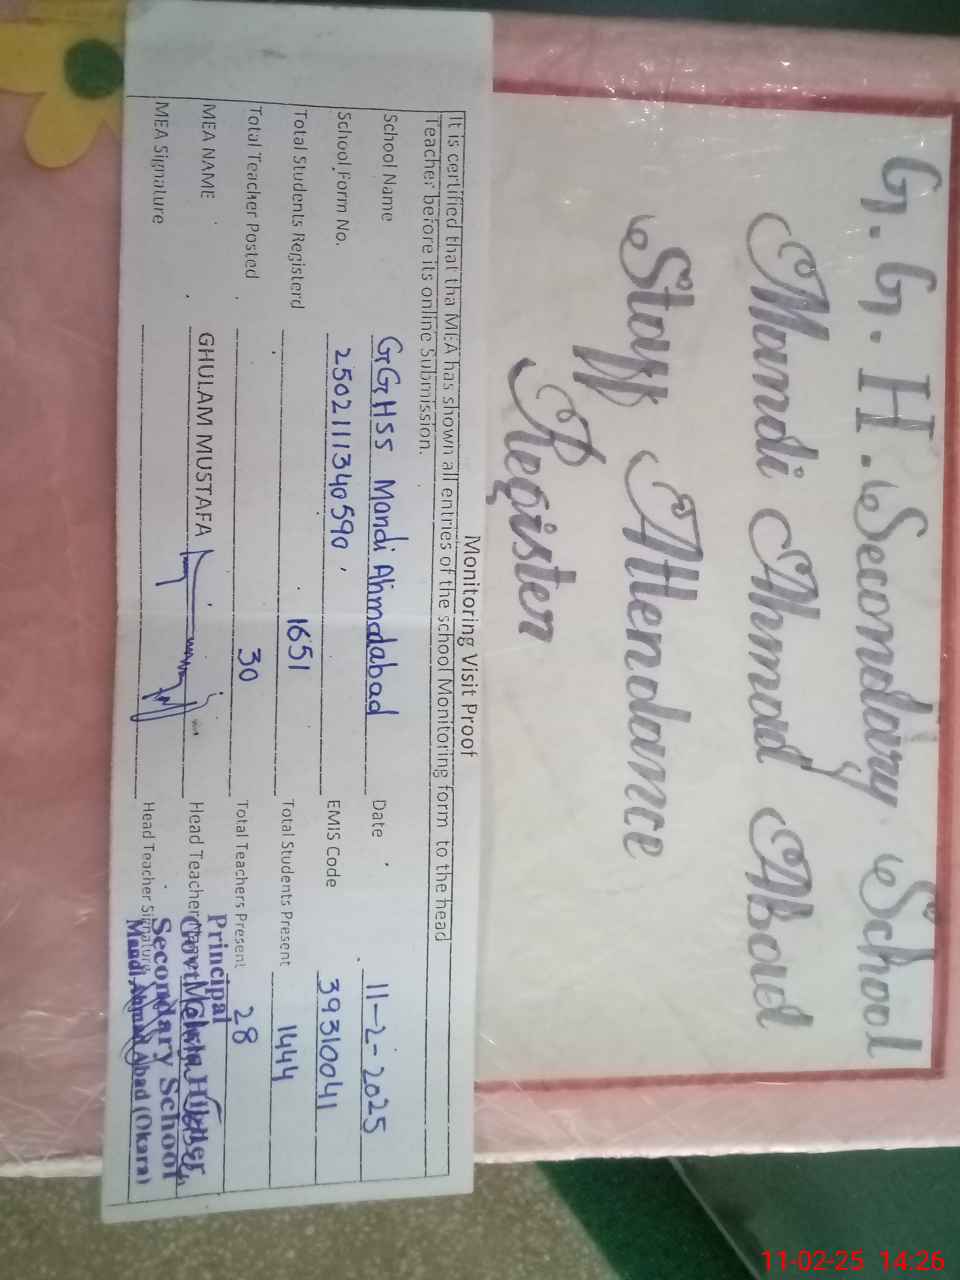 G.G.H.Secondary School
Mandi Ahmad Abad
Staff Attendance
Register
Monitoring Visit Proof
It is certified that tha MEA has shown all entries of the school Monitoring form to the head
Teacher before its online Submission.
School Name GGHSS Mandi Ahmadabad Date 11-2-2025
School Form No. 2502111340590 EMIS Code 39310041
Total Students Registerd 1651 Total Students Present 1444
Total Teacher Posted 30 Total Teachers Present 28
MEA NAME GHULAM MUSTAFA Head Teacher
MEA Signature Head Teacher Signature
Principal
Govt Higher
Secondary School
Mandi Ahmad Abad (Okara)
11-02-25 14:26